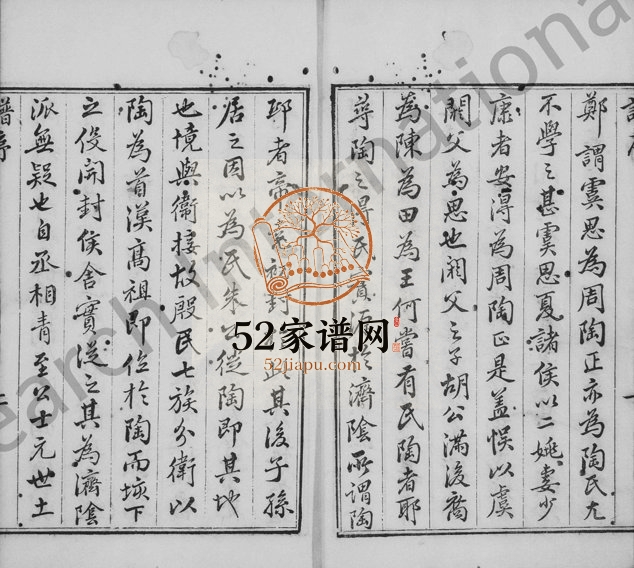 譜序
鄭謂虞思為周陶正亦為陶氏尤
不學之甚虞思夏諸侯以二姚妻少
康者安得為周陶正是蓋悞以虞
閼父為思也閼父之子胡公滿後裔
為陳為田為王何嘗有氏陶者耶
尋陶之得氏實源於濟陰所謂陶
邱者帝堯初封於此其後子孫
居之因以為氏朱公從陶即其地
也境與衛接故殷民七族分衛以
陶為首漢高祖即位於陶而垓下
之役開封侯舍實從之其為濟陰
派無疑也自丞相青至公士元世土
譜序
52家谱网
52jiapu.com
Search International